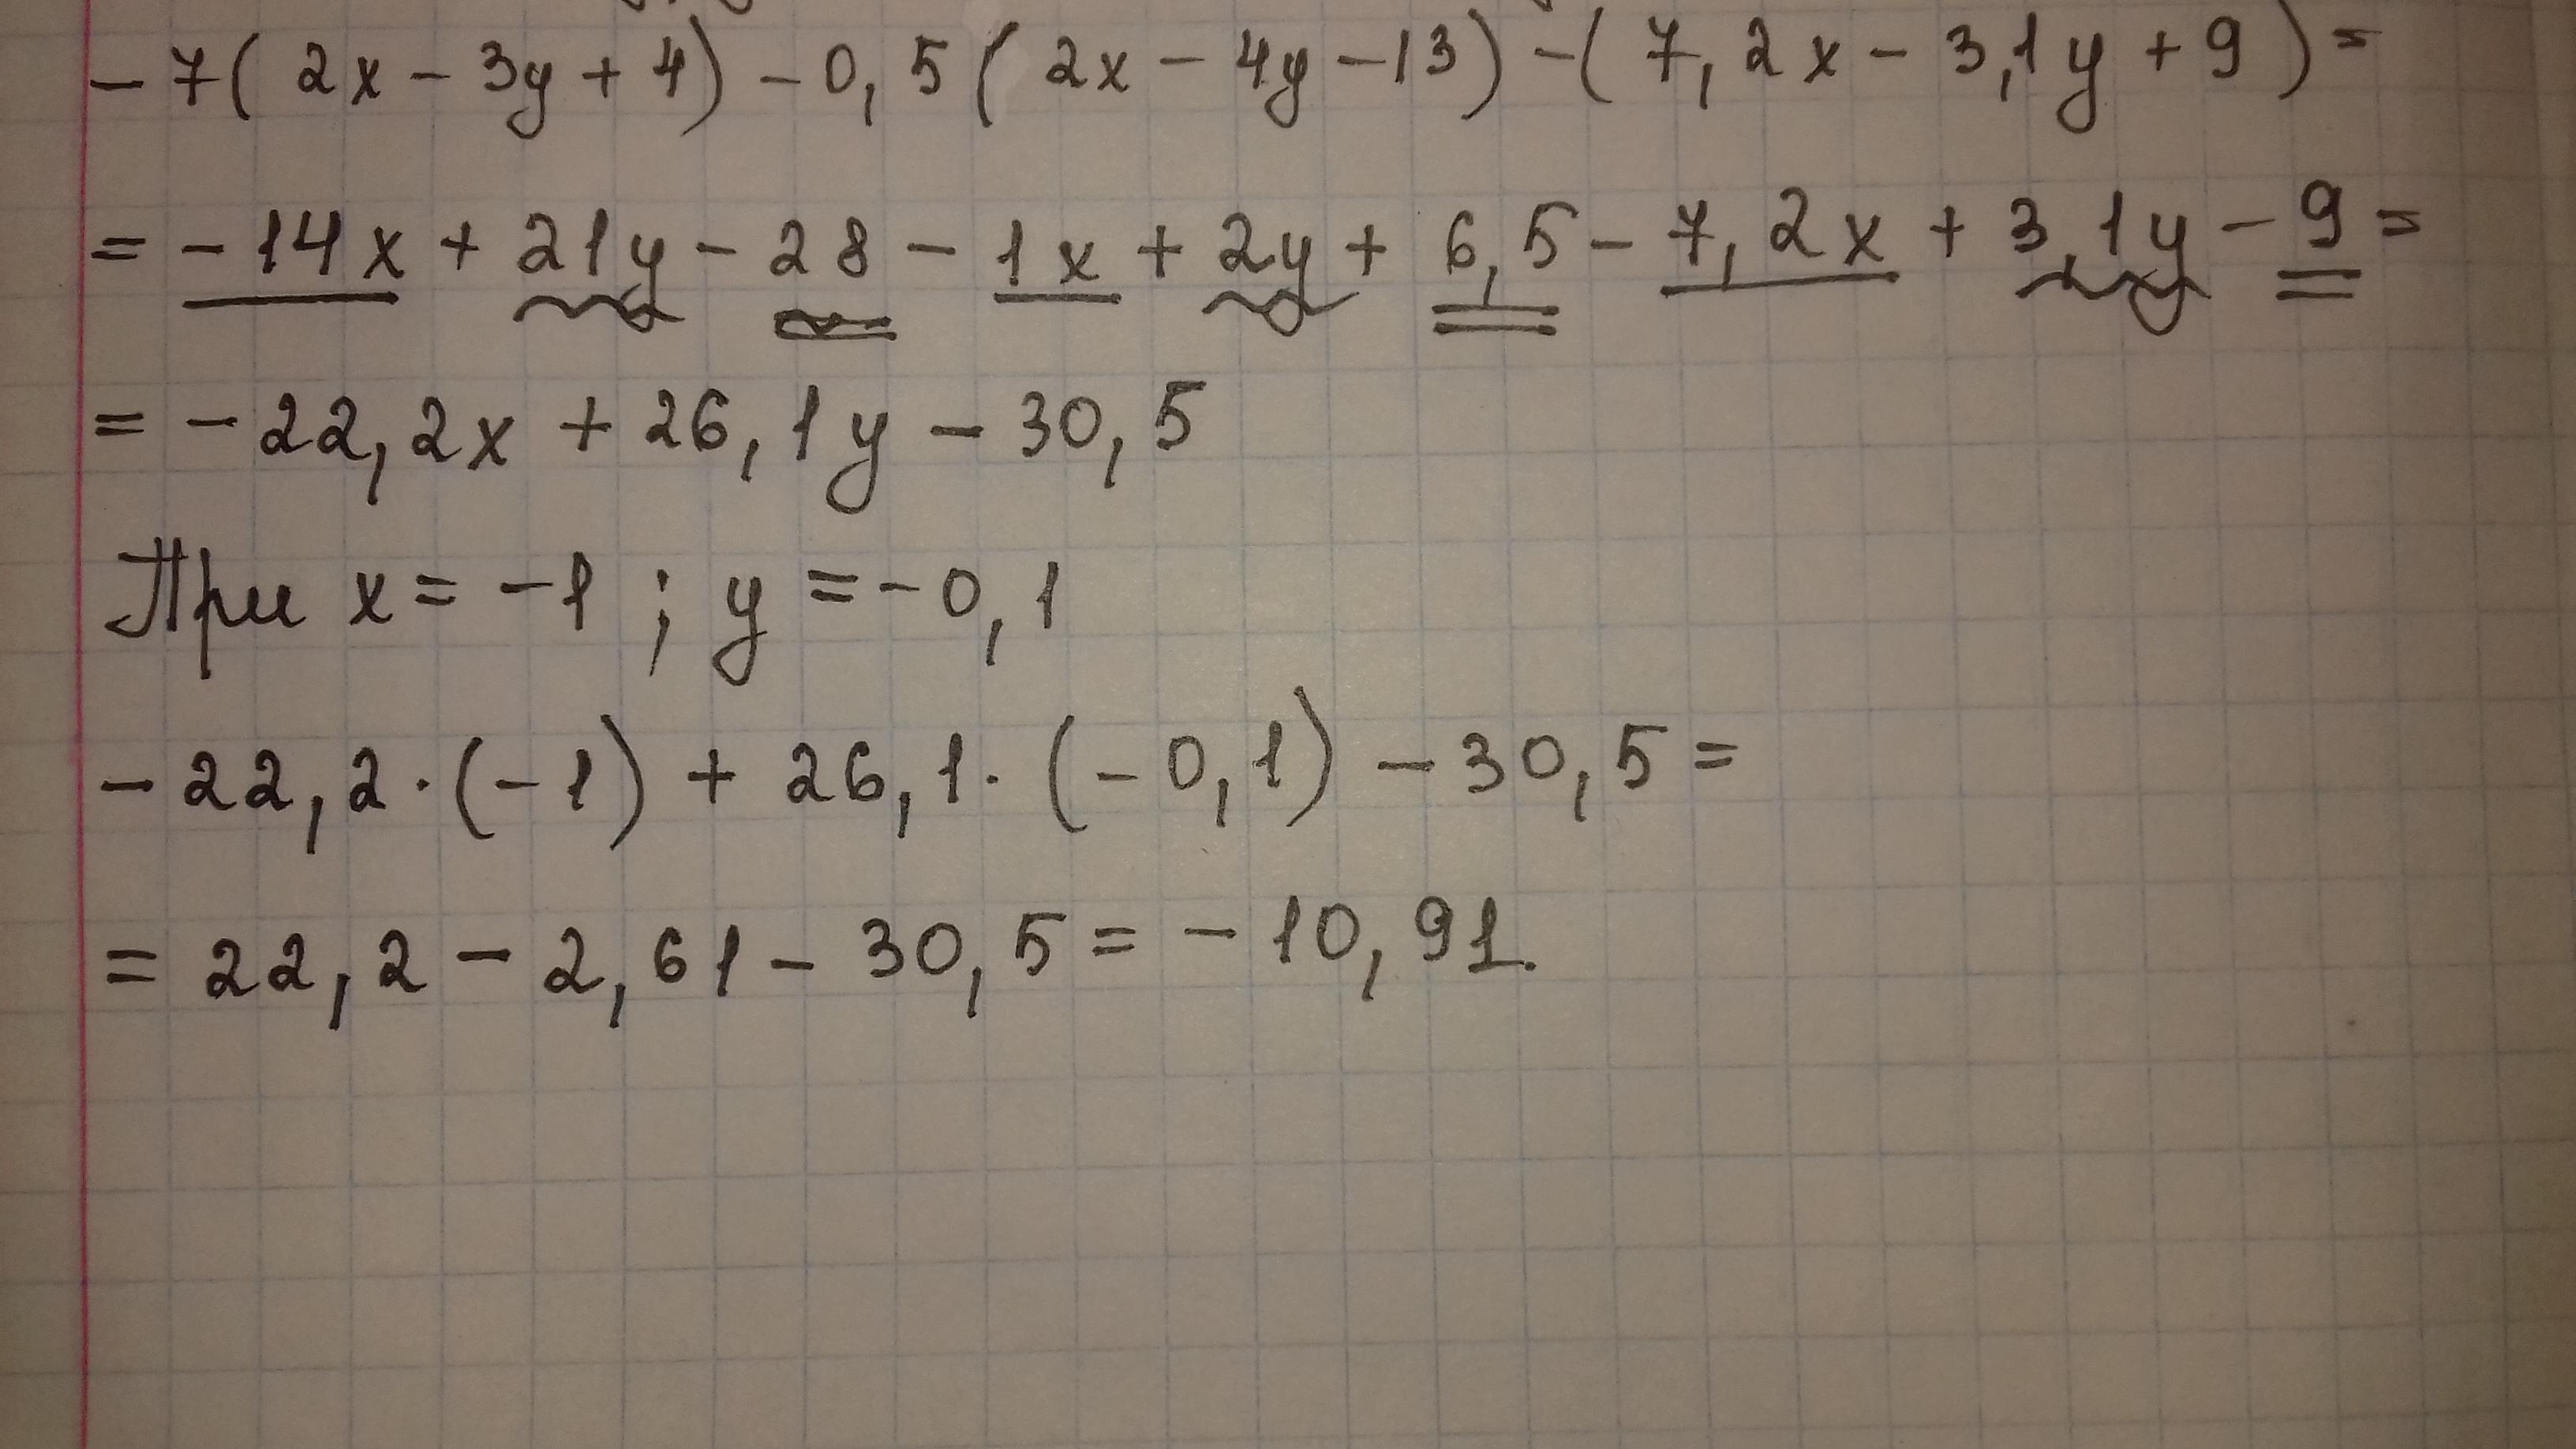 - 7( 2x - 3y + 4) - 0,5( 2x - 4y - 13) - (7,2x - 3,1y + 9) =
= - 14x + 21y - 28 - 1x + 2y + 6,5 - 7,2x + 3,1y - 9 =
= - 22,2x + 26,1y - 30,5
При x = -1 ; y = -0,1
- 22,2 · (-1) + 26,1 · (-0,1) - 30,5 =
= 22,2 - 2,61 - 30,5 = - 10,91.